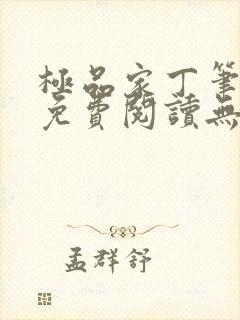 極品家丁筆
免費閱讀無
孟群舒